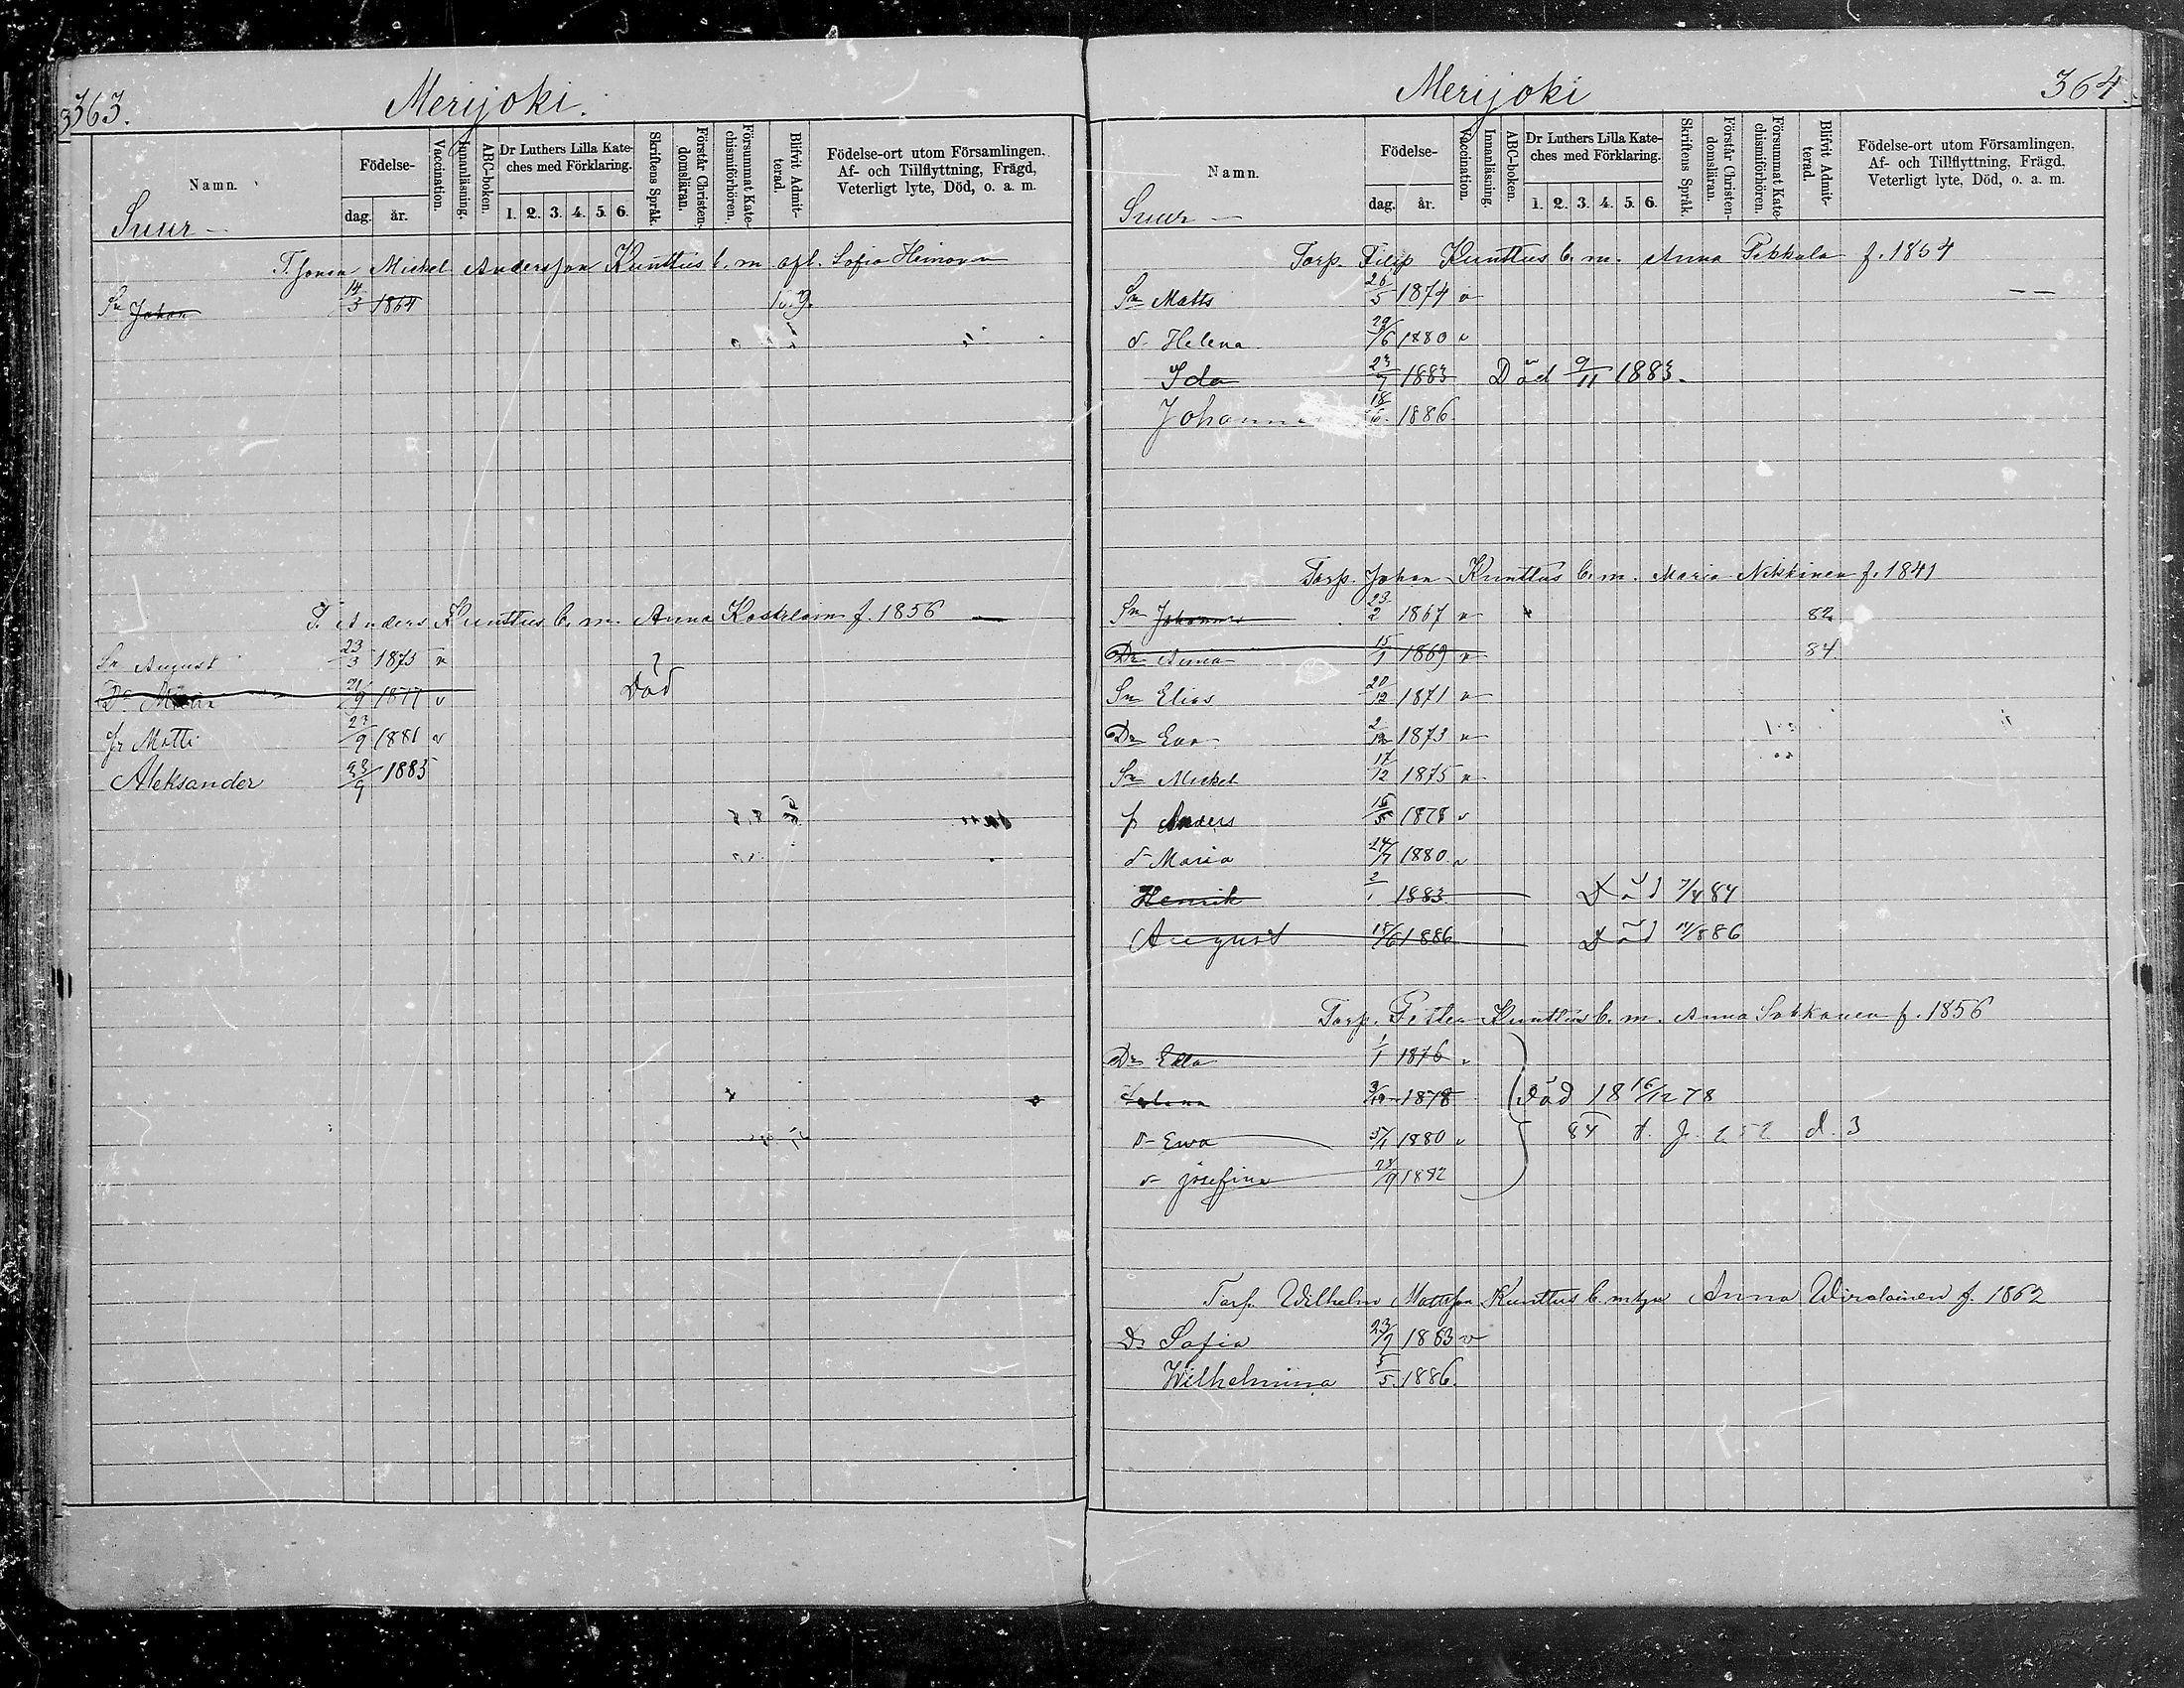 363.
Merijoki.
Namn.
Födelse-
dag. år.
Vaccination.
Innanläsning.
ABC-boken.
Dr Luthers Lilla Kate-
ches med Förklaring.
1. 2. 3. 4. 5. 6.
Skriftens Språk.
Förstår Christen-
domsläran.
Försummat Kate-
chismiförhören.
Blifvit Admit-
terad.
Födelse-ort utom Församlingen,
Af- och Tillflyttning, Frägd,
Veterligt lyte, Död, o. a. m.
Suur —
Michel Andersson Kunttus b. m. Sofia
Sn Johan 14/3 1864
T. Anders Kunttus b. m. Anna f. 1856 —
Sn August 23/3 1875 v
Dr 1877 v Död
Matti 23/9 1881 v
Aleksander 23/9 1885
Merijoki
364.
Namn.
Födelse-
dag. år.
Vaccination.
Innanläsning.
ABC-boken.
Dr Luthers Lilla Kate-
ches med Förklaring.
1. 2. 3. 4. 5. 6.
Skriftens Språk.
Förstår Christen-
domsläran.
Försummat Kate-
chismiförhören.
Blifvit Admit-
terad.
Födelse-ort utom Församlingen,
Af- och Tillflyttning, Frägd,
Veterligt lyte, Död, o. a. m.
Suur —
Torp. Filip Kunttus b. m. Anna Pekkala f. 1854
Sn Matts 26/5 1874 v
d Helena 29/6 1880 v
Ida 23/7 1883 Död 9/11 1883.
18/6 1886
Torp. Johan Kunttus b. m. Maria Nikkinen f. 1841
Sn Johannes 23/2 1867 v 82
Dr Anna 15/1 1869 v 84
Sn Elias 20/12 1871 v
Dr Eva 2/12 1873 v
Sn Mickel 17/12 1875 v
Anders 16/5 1878 v
d Maria 24/7 1880 v
Henrik 2/1 1883 Död 7/4 84
August 18/6 1886 Död 886
Torp. Petter Kunttus b. m. Anna Sokkanen f. 1856
Dr Ella 1/1 1876 v
Helena 1878 Död 18 16/12 78
d Ewa 5/1 1880 v 84 252 d. 3
d Josefina 28/9 1882
Torp. Wilhelm Mattsson Kunttus b. m. Anna Wirolainen f. 1862
Dr Sofia 23/7 1883 v
Wilhelmina 5/5 1886.